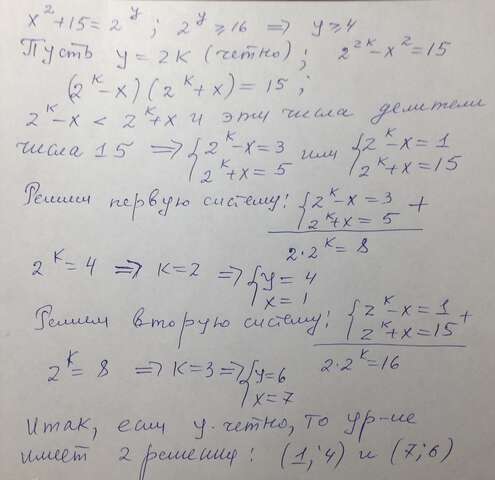 x² + 15 = 2^y ; 2^y ≥ 16 ⟹ y ≥ 4
Пусть y = 2k (четно) ; 2^2k − x² = 15
(2^k − x) (2^k + x) = 15 ;
2^k − x < 2^k + x и эти числа делители
числа 15 ⟹ { 2^k − x = 3 или { 2^k − x = 1
2^k + x = 5 2^k + x = 15
Решим первую систему: { 2^k − x = 3 +
2^k + x = 5
2·2^k = 8
2^k = 4 ⟹ k = 2 ⟹ { y = 4
x = 1
Решим вторую систему: { 2^k − x = 1 +
2^k + x = 15
2^k = 8 ⟹ k = 3 ⟹ { y = 6 2·2^k = 16
x = 7
Итак, если y - четно, то ур-ие
имеет 2 решения: (1; 4) и (7; 6)